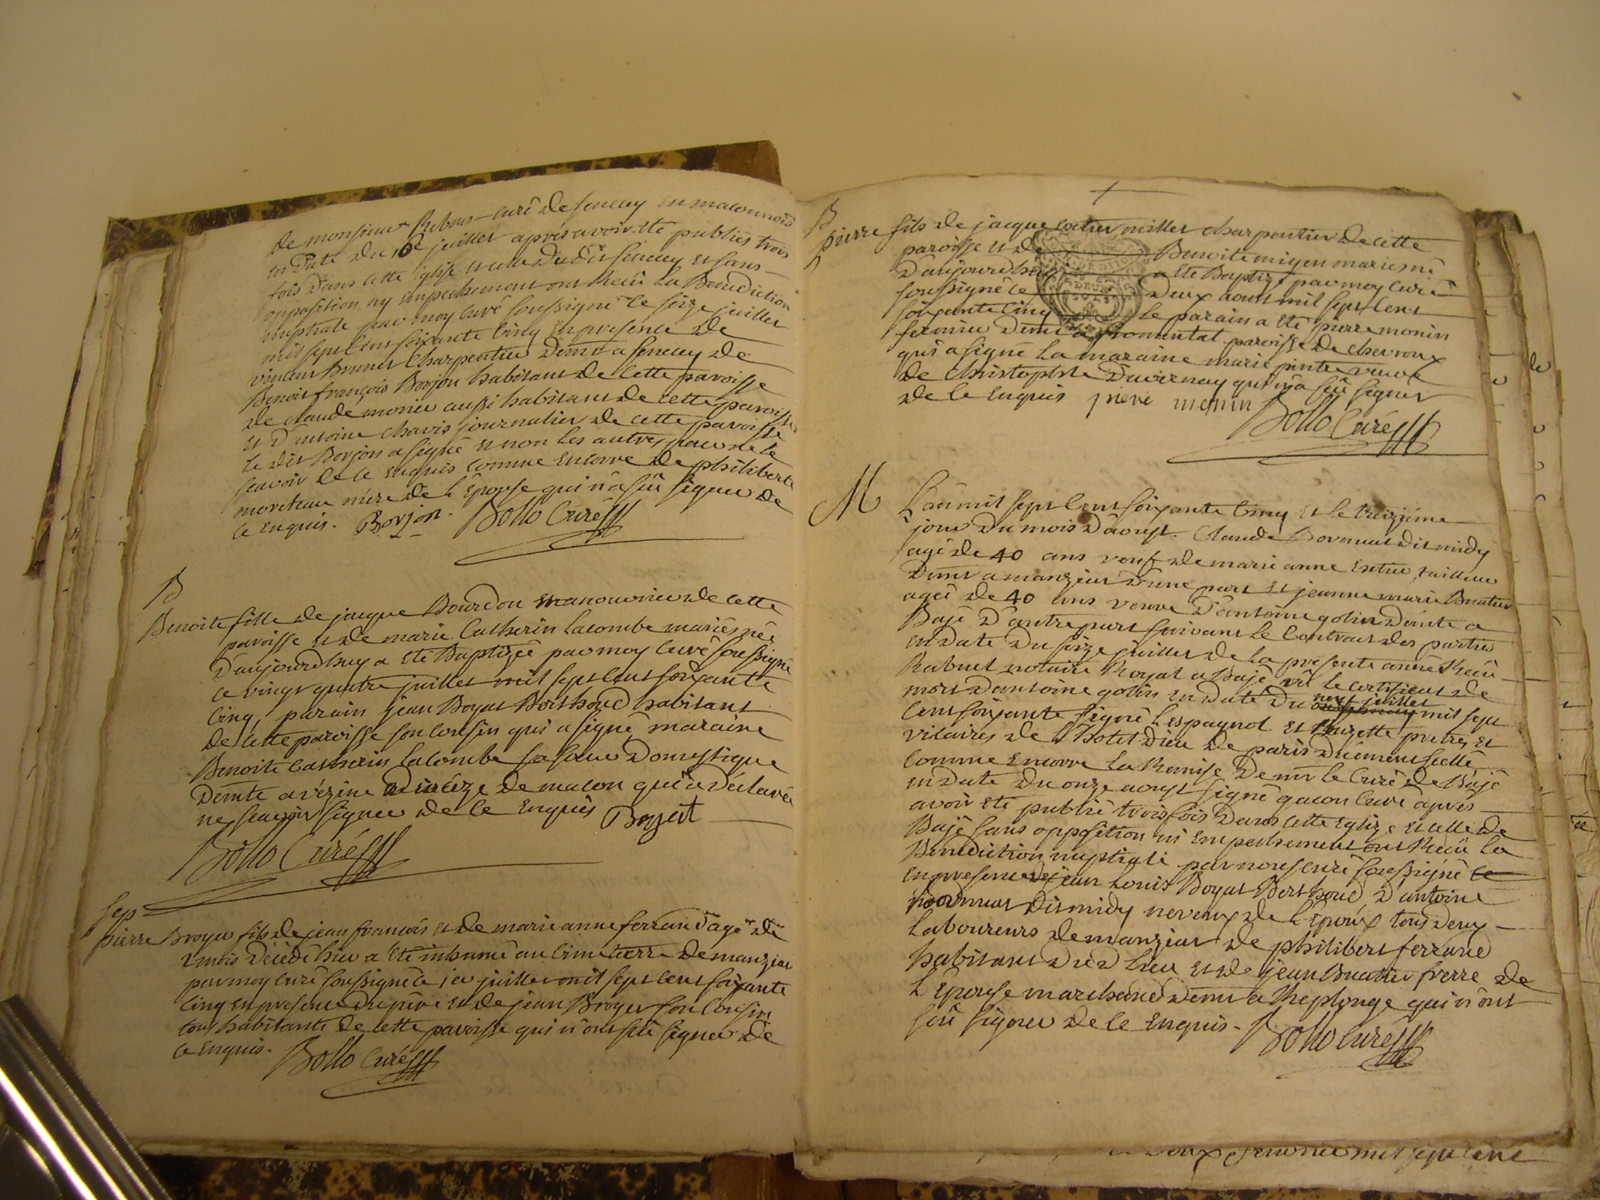 de monsieur Rebous curé de senecey en maconnois
en date du 10 juillet apres avoir eté publiés trois
fois dans cette eglise et celle du dit senecey et sans
opposition ny empechement ont Recü la Benediction
nuptiale par moy curé soussigné le seize juillet
mil sept cent soixante cinq en presence de
vincent Brunet charpentier demt a senecey de
Benoit françois Borjon habitant de cette paroisse
de claude monier aussi habitant de cette paroisse
et d'antoine chavis journalier de cette paroisse
le dit Borjon a signé et non les autres pour ne le
scavoir de ce enquis comme encorre de philiberte
moriteau mere de l'Epouse qui n'a sçû signer de
ce enquis. Borjon. Bollo Curé
B
Benoite fille de jacque Bourdon manouvrier de cette
paroisse et de marie Catherin lacombe mariés née
d'aujourdhuy a eté Baptizée par moy curé soussigné
ce vingt quatre juillet mil sept cent soixante
cinq, parain jean Boyat Berthoud habitant
de cette paroisse son cousin qui a signé maraine
Benoite Catherin lacombe sa soeur Domestique
demte a vézine dioceze de macon qui a déclarée
ne scavoir signer de ce enquis Boyat
Bollo Curé
sep
pierre Broyer fils de jean françois et de marie anne ferrand agé de
2 mois décédé hier a eté inhumé au cimetierre de manziat
par moy curé soussigné ce juillet mil sept cent soixante
cinq en presence du pere et de jean Broyer son cousin
tous habitants de cette paroisse qui n'ont sçû signer de
ce enquis. Bollo Curé
B
pierre fils de jacque Cotier millet charpentier de cette
paroisse et de Benoite migen mariés né
d'aujourdhuy a eté Baptizé par moy curé
soussigné le deux aoust mil sept cent
soixante cinq le parain a eté pierre monin
fermier demt a fromental paroisse de chevroux
qui a signé la maraine marie pinte veuve
de christophle Duvernay qui n'a sçû signer
de ce enquis piere monin
Bollo Curé
M L'an mil sept cent soixante cinq et le treizieme
jour du mois d'aoust. Claude Dormuat dit midy
agé de 40 ans veuf de marie anne tailleur
demt a manziat d'une part et jeanne marie Buatier
agée de 40 ans veuve d'antoine golin demte a
Bagé d'autre part suivant le Contract des parties
en date du seize juillet de la presente année Recü
Rabuet notaire Royal a Bagé vû le certificat de
mort d'antoine golin en date du neuf juillet mil sept
cent soixante signé Lespagnol et prêtres et
vicaires de l'hotel Dieu de paris düement scellé
comme encorre la Remise de mr le Curé de Bagé
en date du onze aoust signé gacon curé après
avoir eté publié trois fois dans cette Eglize et celle de
Bagé sans opposition ni empechement ont Recü la
Benediction nuptiale par nous curé soussigné ce
en presence de jean Louis Boyat Berthoud d'antoine
Dormuat dit midy neveux de l'Epoux tous deux
laboureurs de manziat de philibert ferrand
habitant du d lieu et de jean Buatier frerre de
l'Epouse marchand demt a Replonge qui n'ont
sçû signer de ce enquis. Bollo Curé
deux fevrier mil sept cent